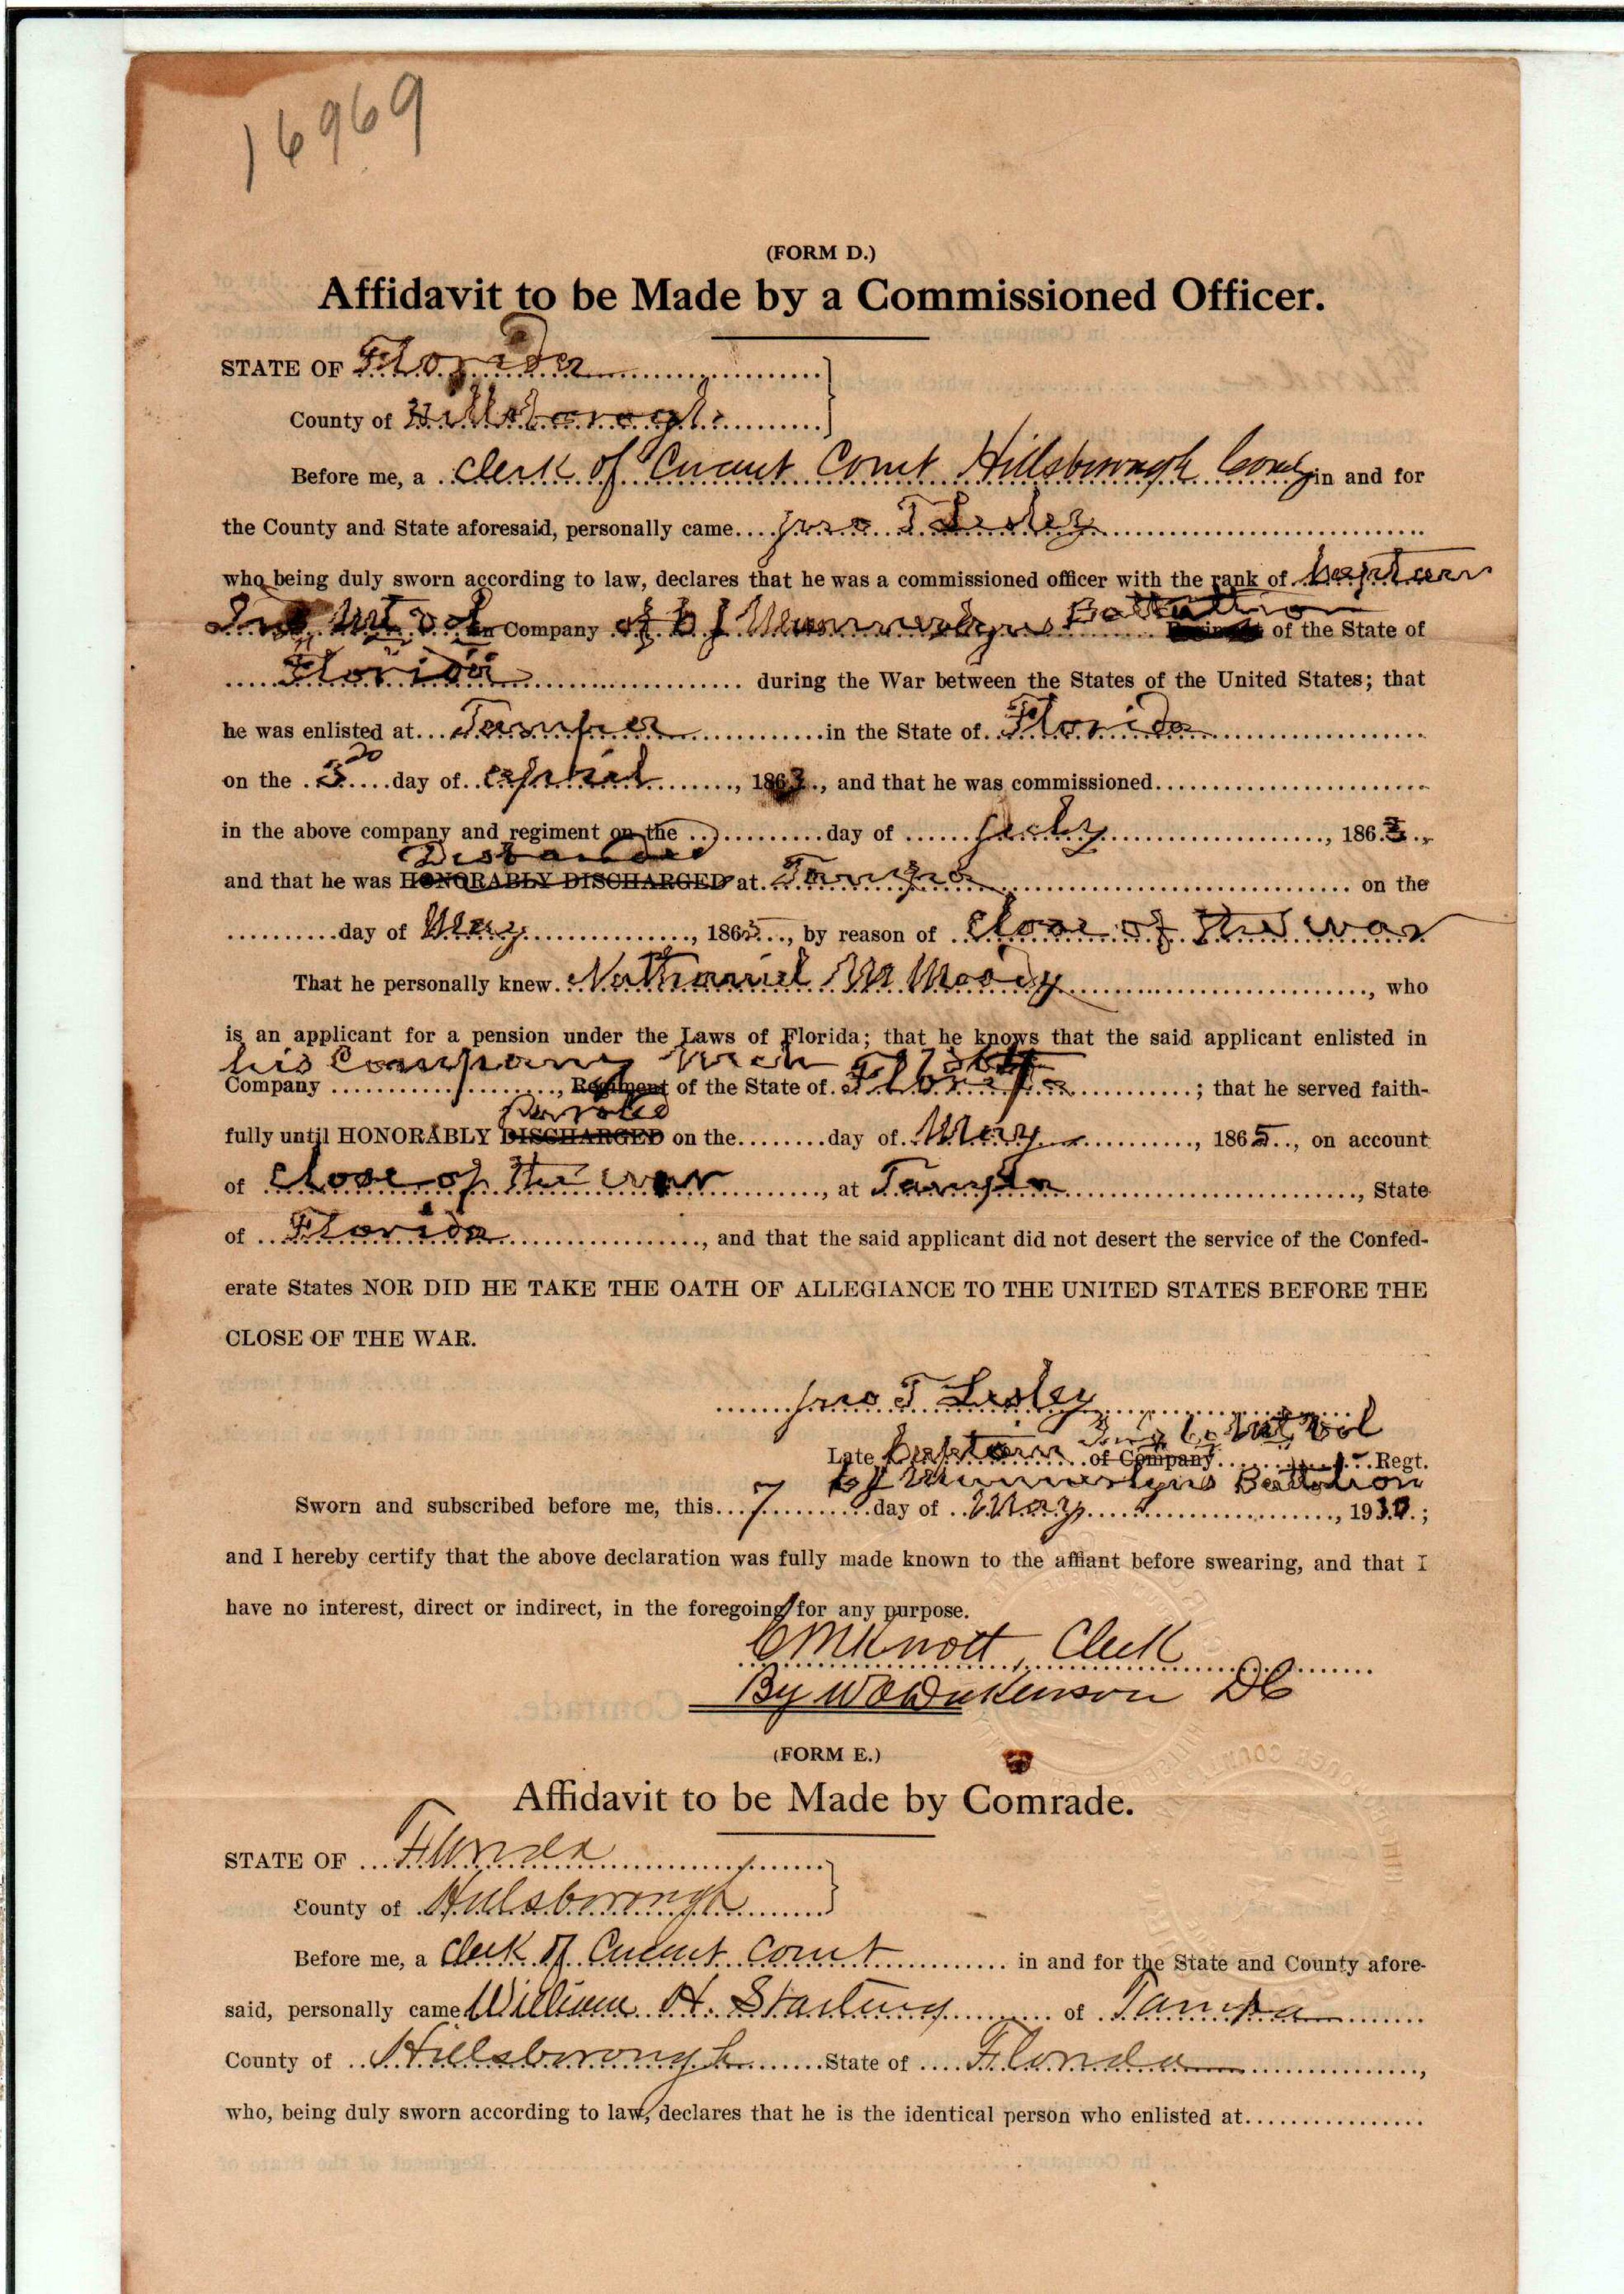 16969
(FORM D.)
Affidavit to be Made by a Commissioned Officer.
STATE OF Florida
County of Hillsborough
Before me, a Clerk of Circuit Court Hillsborough County in and for
the County and State aforesaid, personally came Jno T Lesley
who being duly sworn according to law, declares that he was a commissioned officer with the rank of Captain
in Company of C J Munnerlyns Battallion of the State of
Florida during the War between the States of the United States; that
he was enlisted at Tampa in the State of Florida
on the 20 day of April, 1863, and that he was commissioned
in the above company and regiment on the day of July, 1863,
Disbanded
and that he was HONORABLY DISCHARGED at Tampa on the
day of May, 1865, by reason of Close of the war
That he personally knew Nathaniel M Moody, who
is an applicant for a pension under the Laws of Florida; that he knows that the said applicant enlisted in
his Company
Company, Regiment of the State of Florida; that he served faith-
Paroled
fully until HONORABLY DISCHARGED on the day of May, 1865, on account
of Close of the war, at Tampa, State
of Florida, and that the said applicant did not desert the service of the Confed-
erate States NOR DID HE TAKE THE OATH OF ALLEGIANCE TO THE UNITED STATES BEFORE THE
CLOSE OF THE WAR.
Jno T Lesley
Late Captain of Company Ind Co Vol Regt.
C J Munnerlyns Battalion
Sworn and subscribed before me, this 7 day of May, 19;
and I hereby certify that the above declaration was fully made known to the affiant before swearing, and that I
have no interest, direct or indirect, in the foregoing for any purpose.
C M Knott, Clerk
By W A Dickenson DC
(FORM E.)
Affidavit to be Made by Comrade.
STATE OF Florida
County of Hillsborough
Before me, a Clerk of Circuit Court in and for the State and County afore-
said, personally came William H. Starling of Tampa
County of Hillsborough State of Florida,
who, being duly sworn according to law, declares that he is the identical person who enlisted at